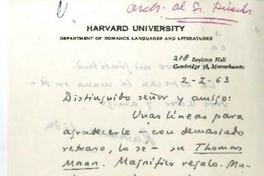 arch. al Sr.
HARVARD UNIVERSITY
DEPARTMENT OF ROMANCE LANGUAGES AND LITERATURES
218 Boylston Hall
Cambridge 38, Massachusetts
2-I-63
Distinguido señor y amigo:
Unas líneas para
agradecerle - con demasiado
retraso, lo sé - su Thomas
Mann. Magnífico regalo.